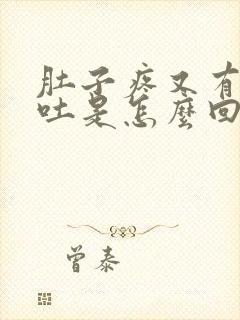 肚子疼又有
吐是怎麼回
曾泰